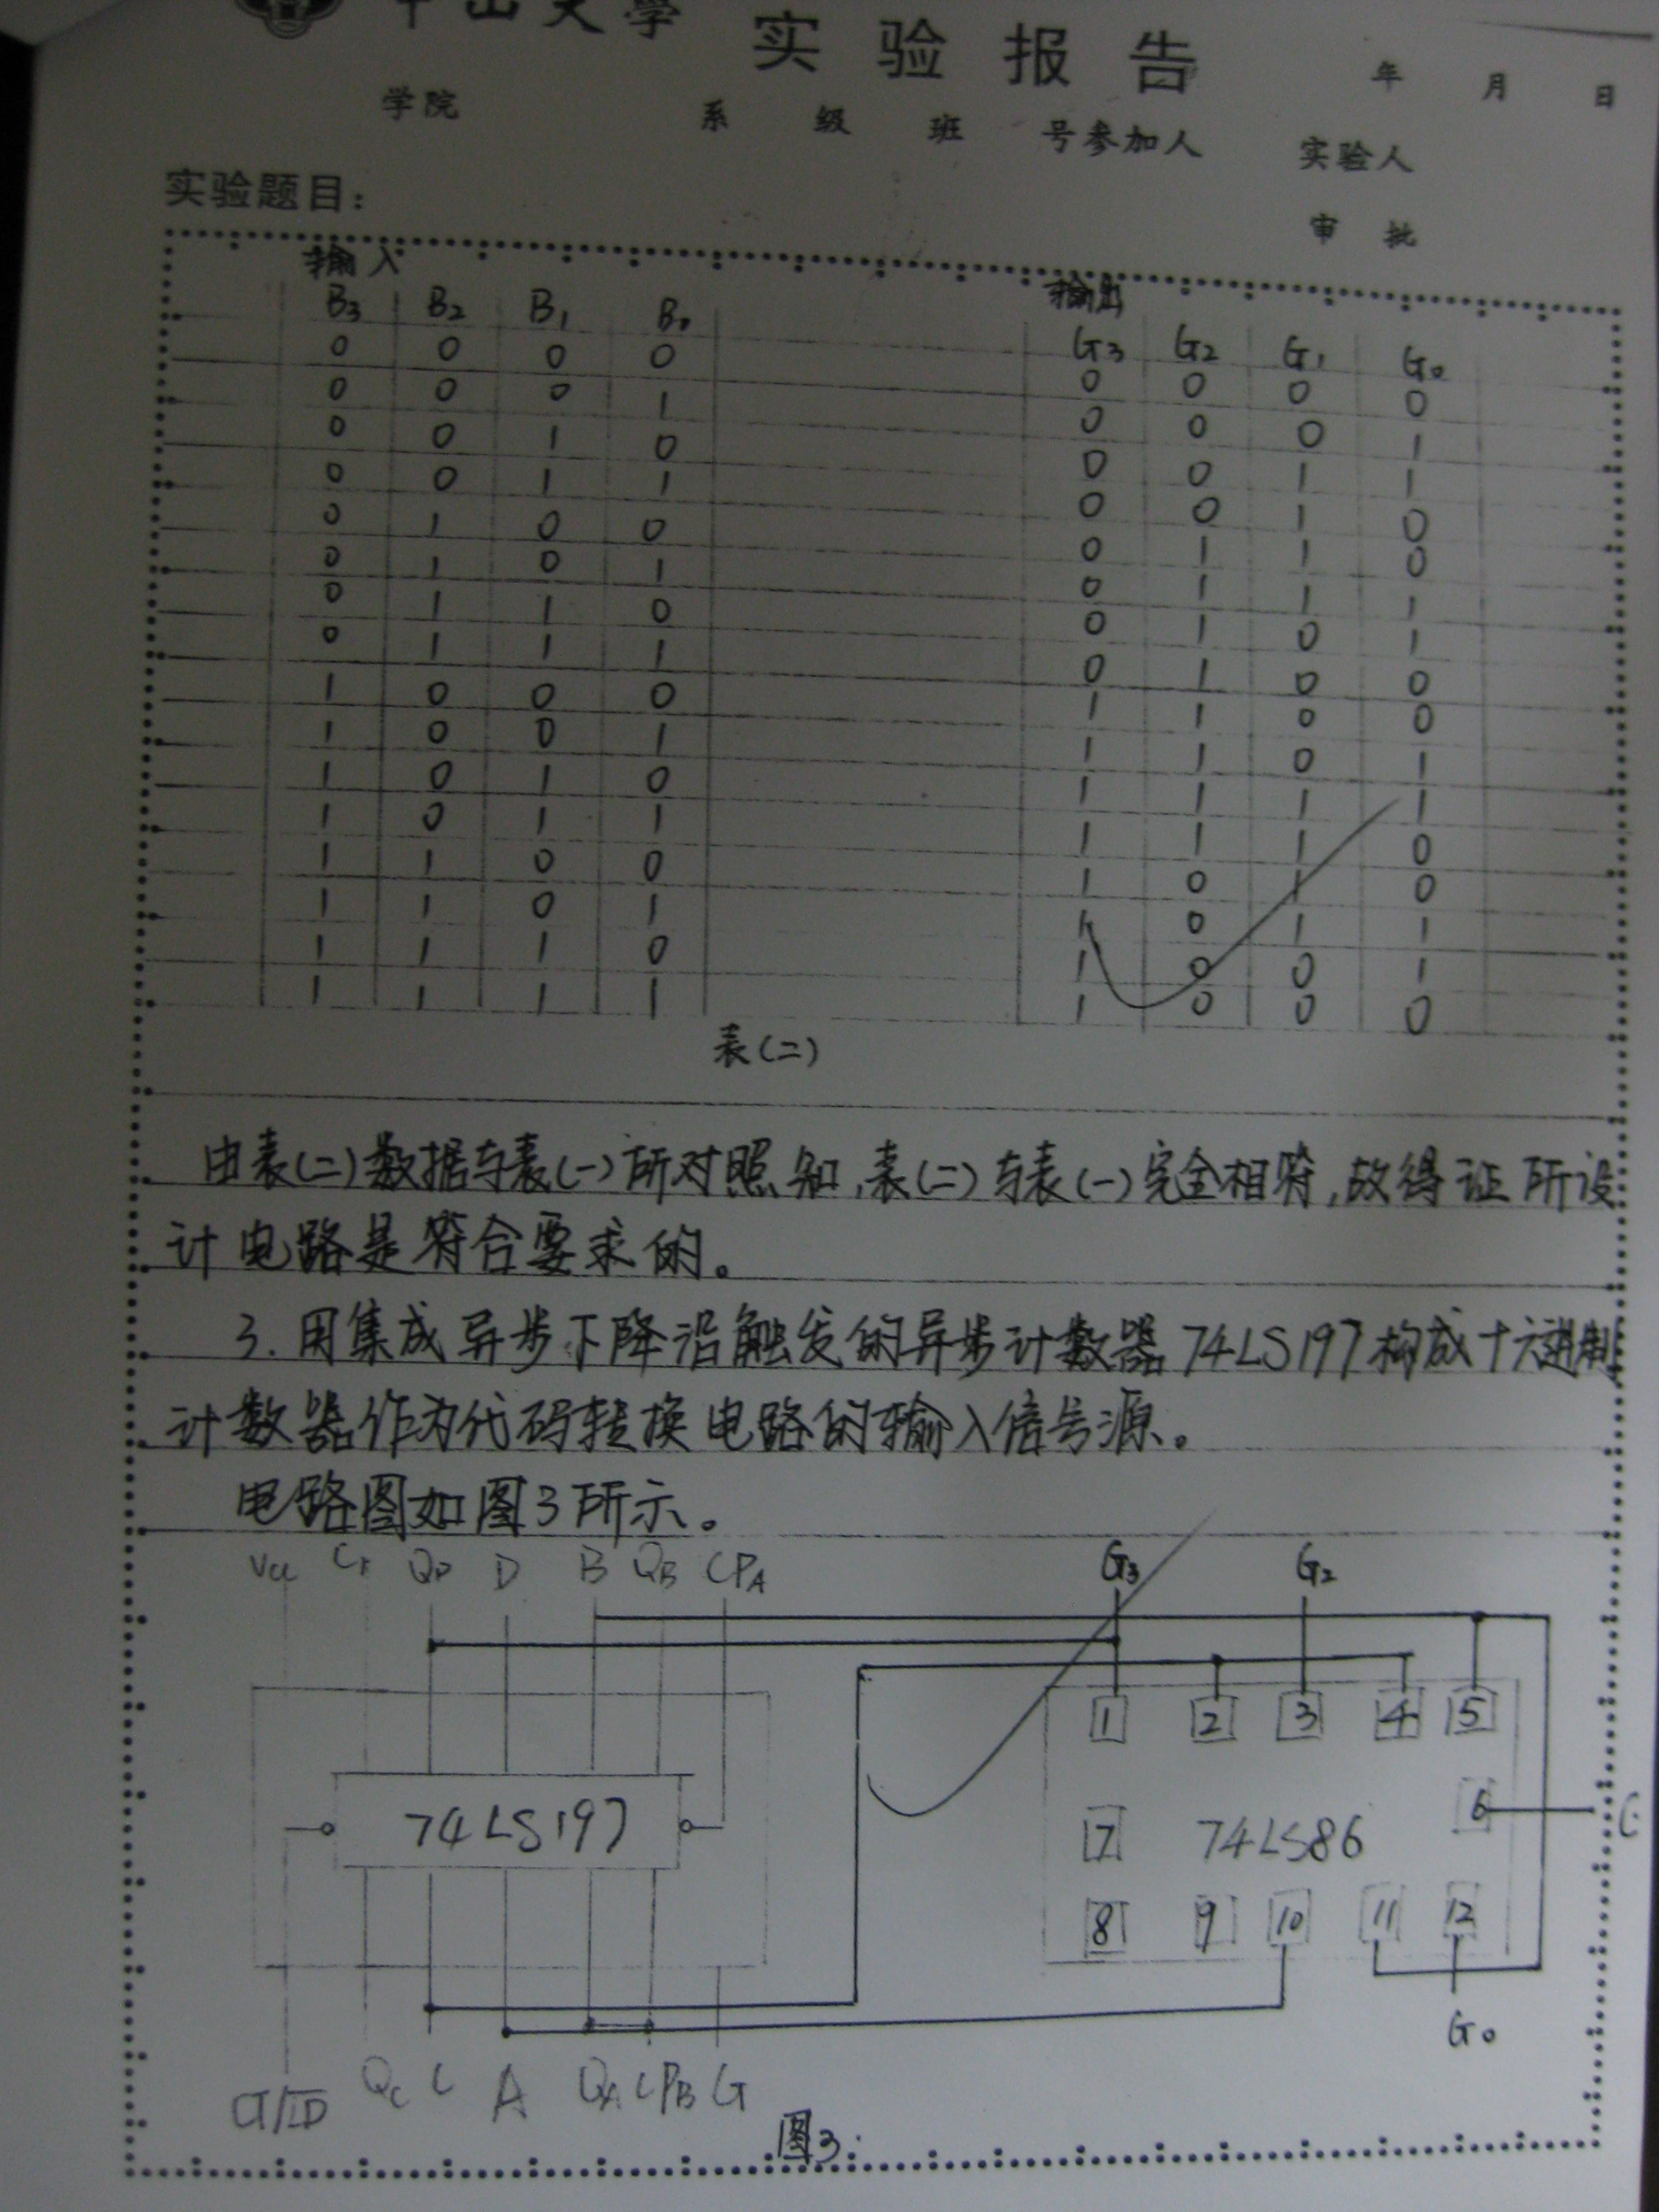 中山大学 实验报告
年 月 日
学院 系 级 班 号参加人 实验人
实验题目:
审 批
输入 输出
B3 B2 B1 B0 G3 G2 G1 G0
0 0 0 0 0 0 0 0
0 0 0 1 0 0 0 1
0 0 1 0 0 0 1 1
0 0 1 1 0 0 1 0
0 1 0 0 0 1 1 0
0 1 0 1 0 1 1 1
0 1 1 0 0 1 0 1
0 1 1 1 0 1 0 0
1 0 0 0 1 1 0 0
1 0 0 1 1 1 0 1
1 0 1 0 1 1 1 1
1 0 1 1 1 1 1 0
1 1 0 0 1 0 1 0
1 1 0 1 1 0 1 1
1 1 1 0 1 0 0 1
1 1 1 1 1 0 0 0
表(二)
由表(二)数据与表(一)所对照知,表(二)与表(一)完全相符,故得证所设
计电路是符合要求的。
3.用集成异步下降沿触发的异步计数器74LS197构成十六进制
计数器作为代码转换电路的输入信号源。
电路图如图3所示。
Vcc Cr QD D B QB CPA G3 G2
1 2 3 4 5
74LS197 7 74LS86 6
8 9 10 11 12
G0
CT/LD QC C A QA CPB G
图3.